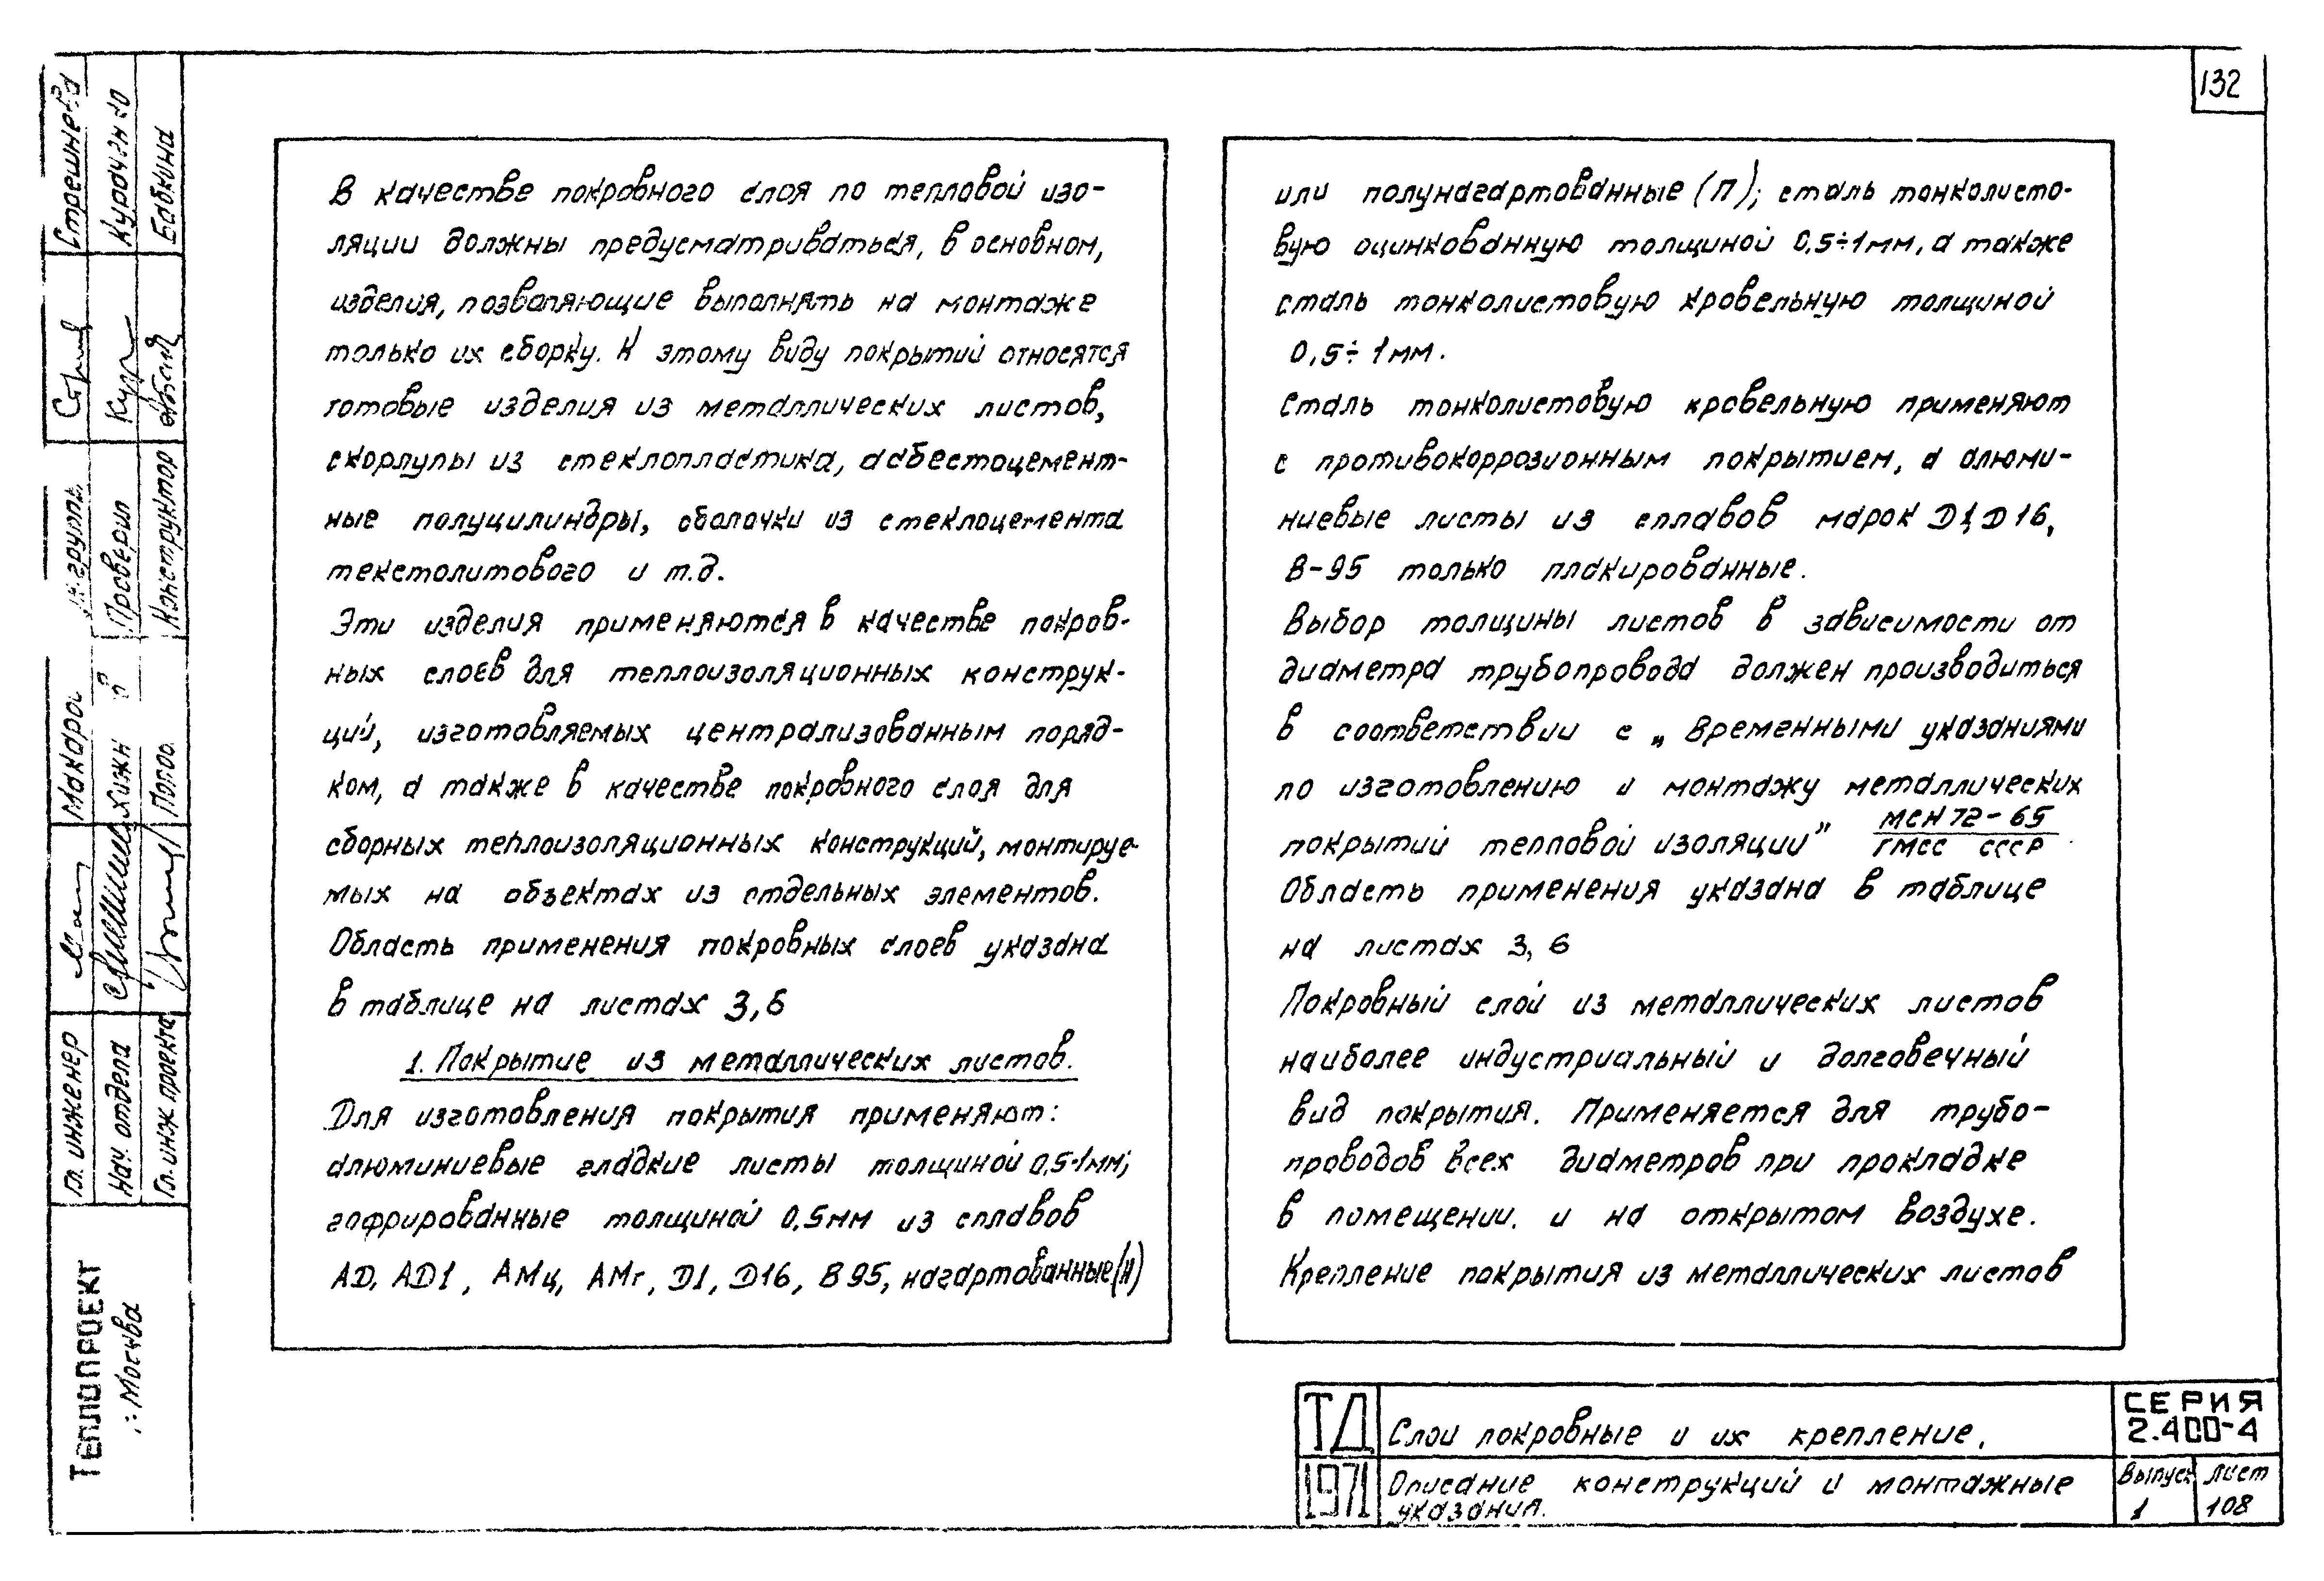 132
В качестве покровного слоя по тепловой изо-
ляции должны предусматриваться, в основном,
изделия, позволяющие выполнять на монтаже
только их сборку. К этому виду покрытий относятся
готовые изделия из металлических листов,
скорлупы из стеклопластика, асбестоцемент-
ные полуцилиндры, оболочки из стеклоцемента
текстолитового и т.д.
Эти изделия применяются в качестве покров-
ных слоев для теплоизоляционных конструк-
ций, изготовляемых централизованным поряд-
ком, а также в качестве покровного слоя для
сборных теплоизоляционных конструкций, монтируе-
мых на объектах из отдельных элементов.
Область применения покровных слоев указана
в таблице на листах 3, 6
1. Покрытие из металлических листов.
Для изготовления покрытия применяют:
алюминиевые гладкие листы толщиной 0,5-1мм;
гофрированные толщиной 0,5мм из сплавов
АД, АД1, АМц, АМг, Д1, Д16, В95, нагартованные(Н)
или полунагартованные (П); сталь тонколисто-
вую оцинкованную толщиной 0,5÷1мм, а также
сталь тонколистовую кровельную толщиной
0,5÷1мм.
Сталь тонколистовую кровельную применяют
с противокоррозионным покрытием, а алюми-
ниевые листы из сплавов марок Д1, Д16,
В-95 только плакированные.
Выбор толщины листов в зависимости от
диаметра трубопровода должен производиться
в соответствии с „Временными указаниями
по изготовлению и монтажу металлических
покрытий тепловой изоляции" МСН 72-65
ГМСС СССР
Область применения указана в таблице
на листах 3, 6
Покровный слой из металлических листов
наиболее индустриальный и долговечный
вид покрытия. Применяется для трубо-
проводов всех диаметров при прокладке
в помещении. и на открытом воздухе.
Крепление покрытия из металлических листов
ТД
1971
Слои покровные и их крепление.
Описание конструкций и монтажные
указания.
СЕРИЯ
2.400-4
Выпуск 1
Лист 108
Стрешнева
Курочэнко
Бабкина
группы
Проверил
Конструктор
Гл. инженер
Нач. отдела
Гл. инж. проекта
ТЕПЛОПРОЕКТ
Москва